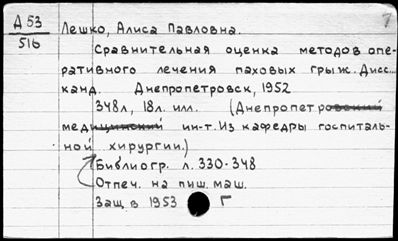 Д 53
516
7
Лешко, Алиса Павловна.
Сравнительная оценка методов опе-
ративного лечения паховых грыж. Дисс...
канд. Днепропетровск, 1952
348л, 18л. илл. (Днепропетровский
медицинский ин-т. Из кафедры госпиталь-
ной хирургии.)
Библиогр. л. 330-348
Отпеч. на пиш. маш.
Защ. в 1953 Г